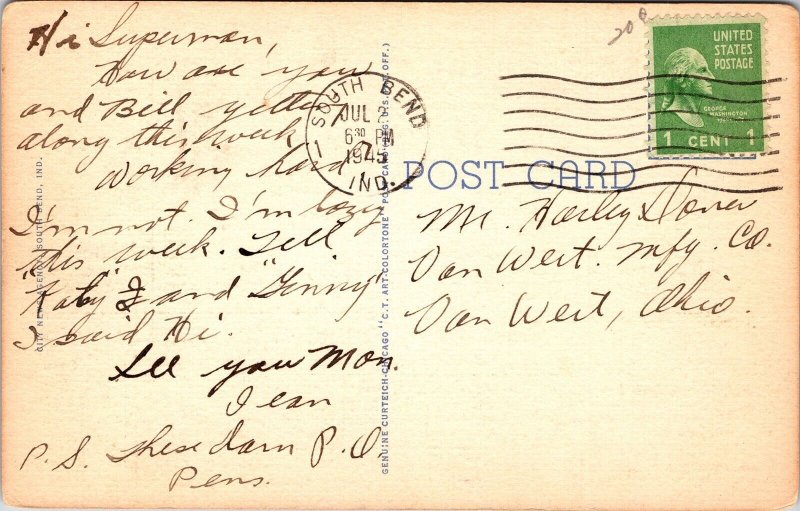 Hi Superman,
How are you
and Bill getting
along this week
Working hard?
I'm not. I'm lazy
this week. Tell
"Katy" J and "Ginny"
I said Hi.
See you Mon.
Jean
P.S. These darn P.O.
Pens.
20¢
SOUTH BEND
JUL
6 30 PM
1945
IND.
UNITED
STATES
POSTAGE
GEORGE
WASHINGTON
1 CENT 1
POST CARD
Mr. Harley
Van Wert. Mfg. Co.
Van Wert, Ohio.
CITY NEWS AGENCY, SOUTH BEND, IND.
GENUINE CURTEICH-CHICAGO "C.T. ART-COLORTONE" POST CARD (REG. U.S. PAT. OFF.)